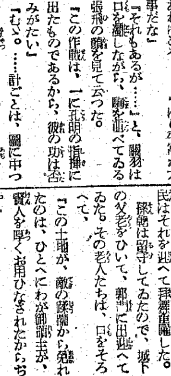 事だな』
『それもあるが……』と、關羽は
口を濁しながら、轡を並べてゐる
張飛の顏を見て云つた。
『この作戰は、一に孔明の指揮に
出たものであるから、彼の功は否
みがたい』
『むゝ。……計ごとは、圖に中つ
民はそれを迎へて拜した。
孫乾は留守してゐたので、城下
の父老をひいて、郭門に出迎へて
ゐた。その老人たちは、口をそろ
へて、
『この土地が、敵の蹂躪から免れ
たのは、ひとへにわが御領主が、
賢人を厚くお用ひなされたからぢ